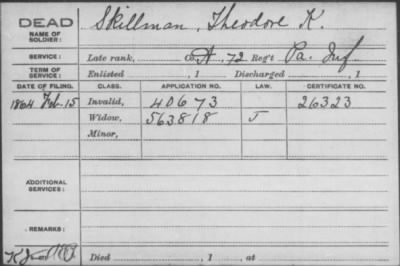 DEAD Skillman, Theodore K.
NAME OF SOLDIER:
SERVICE: Late rank, Co. A, 72 Reg't Pa. Inf
TERM OF SERVICE: Enlisted , 1 Discharged , 1
DATE OF FILING. CLASS. APPLICATION NO. LAW. CERTIFICATE NO.
1864 Feb. 15 Invalid, 40673 26323
Widow, 563818 J
Minor,
ADDITIONAL SERVICES:
REMARKS:
Died , 1 , at